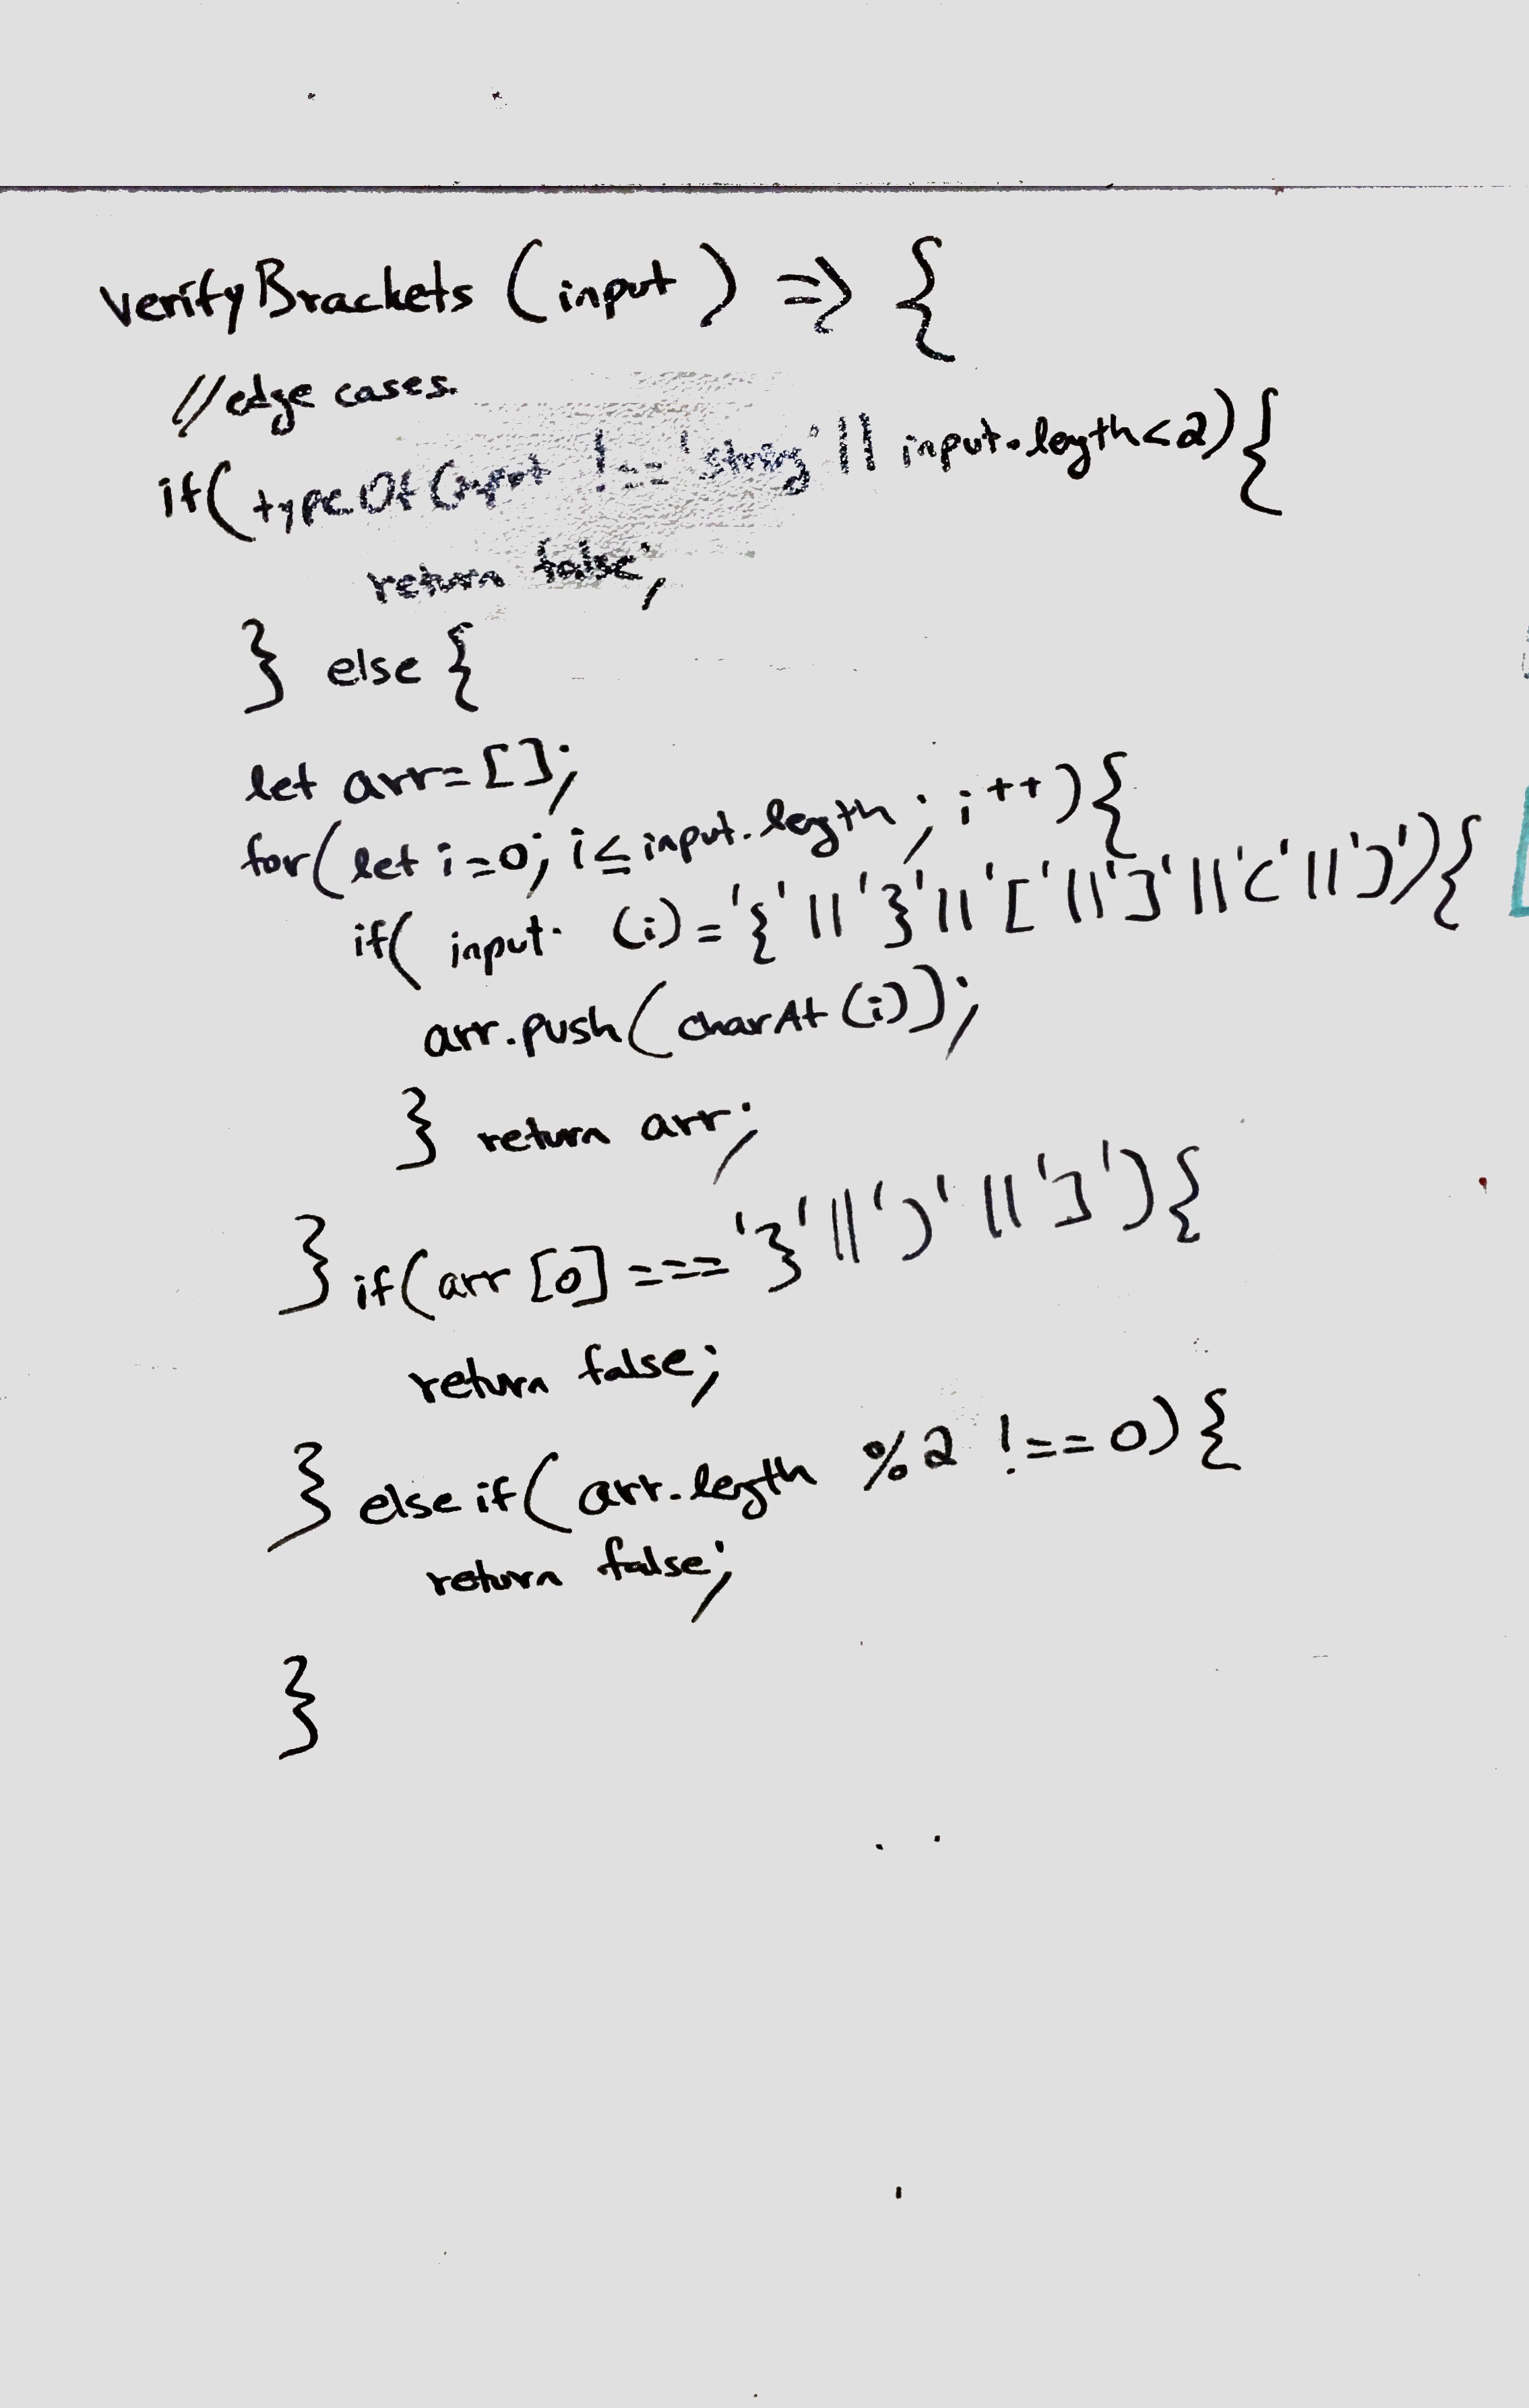 verifyBrackets (input) => {
//edge cases.
if(typeOf(input !== 'string' || input.length<2){
return false;
} else {
let arr=[];
for(let i=0; i≤input.length; i++){
if( input. (i)='{' || '}' || '[' || ']' || '(' || ')'){
arr.push(charAt(i));
} return arr;
} if(arr[0]==='}' || ')' || ']'){
return false;
} else if(arr.length %2 !==0){
return false;
}